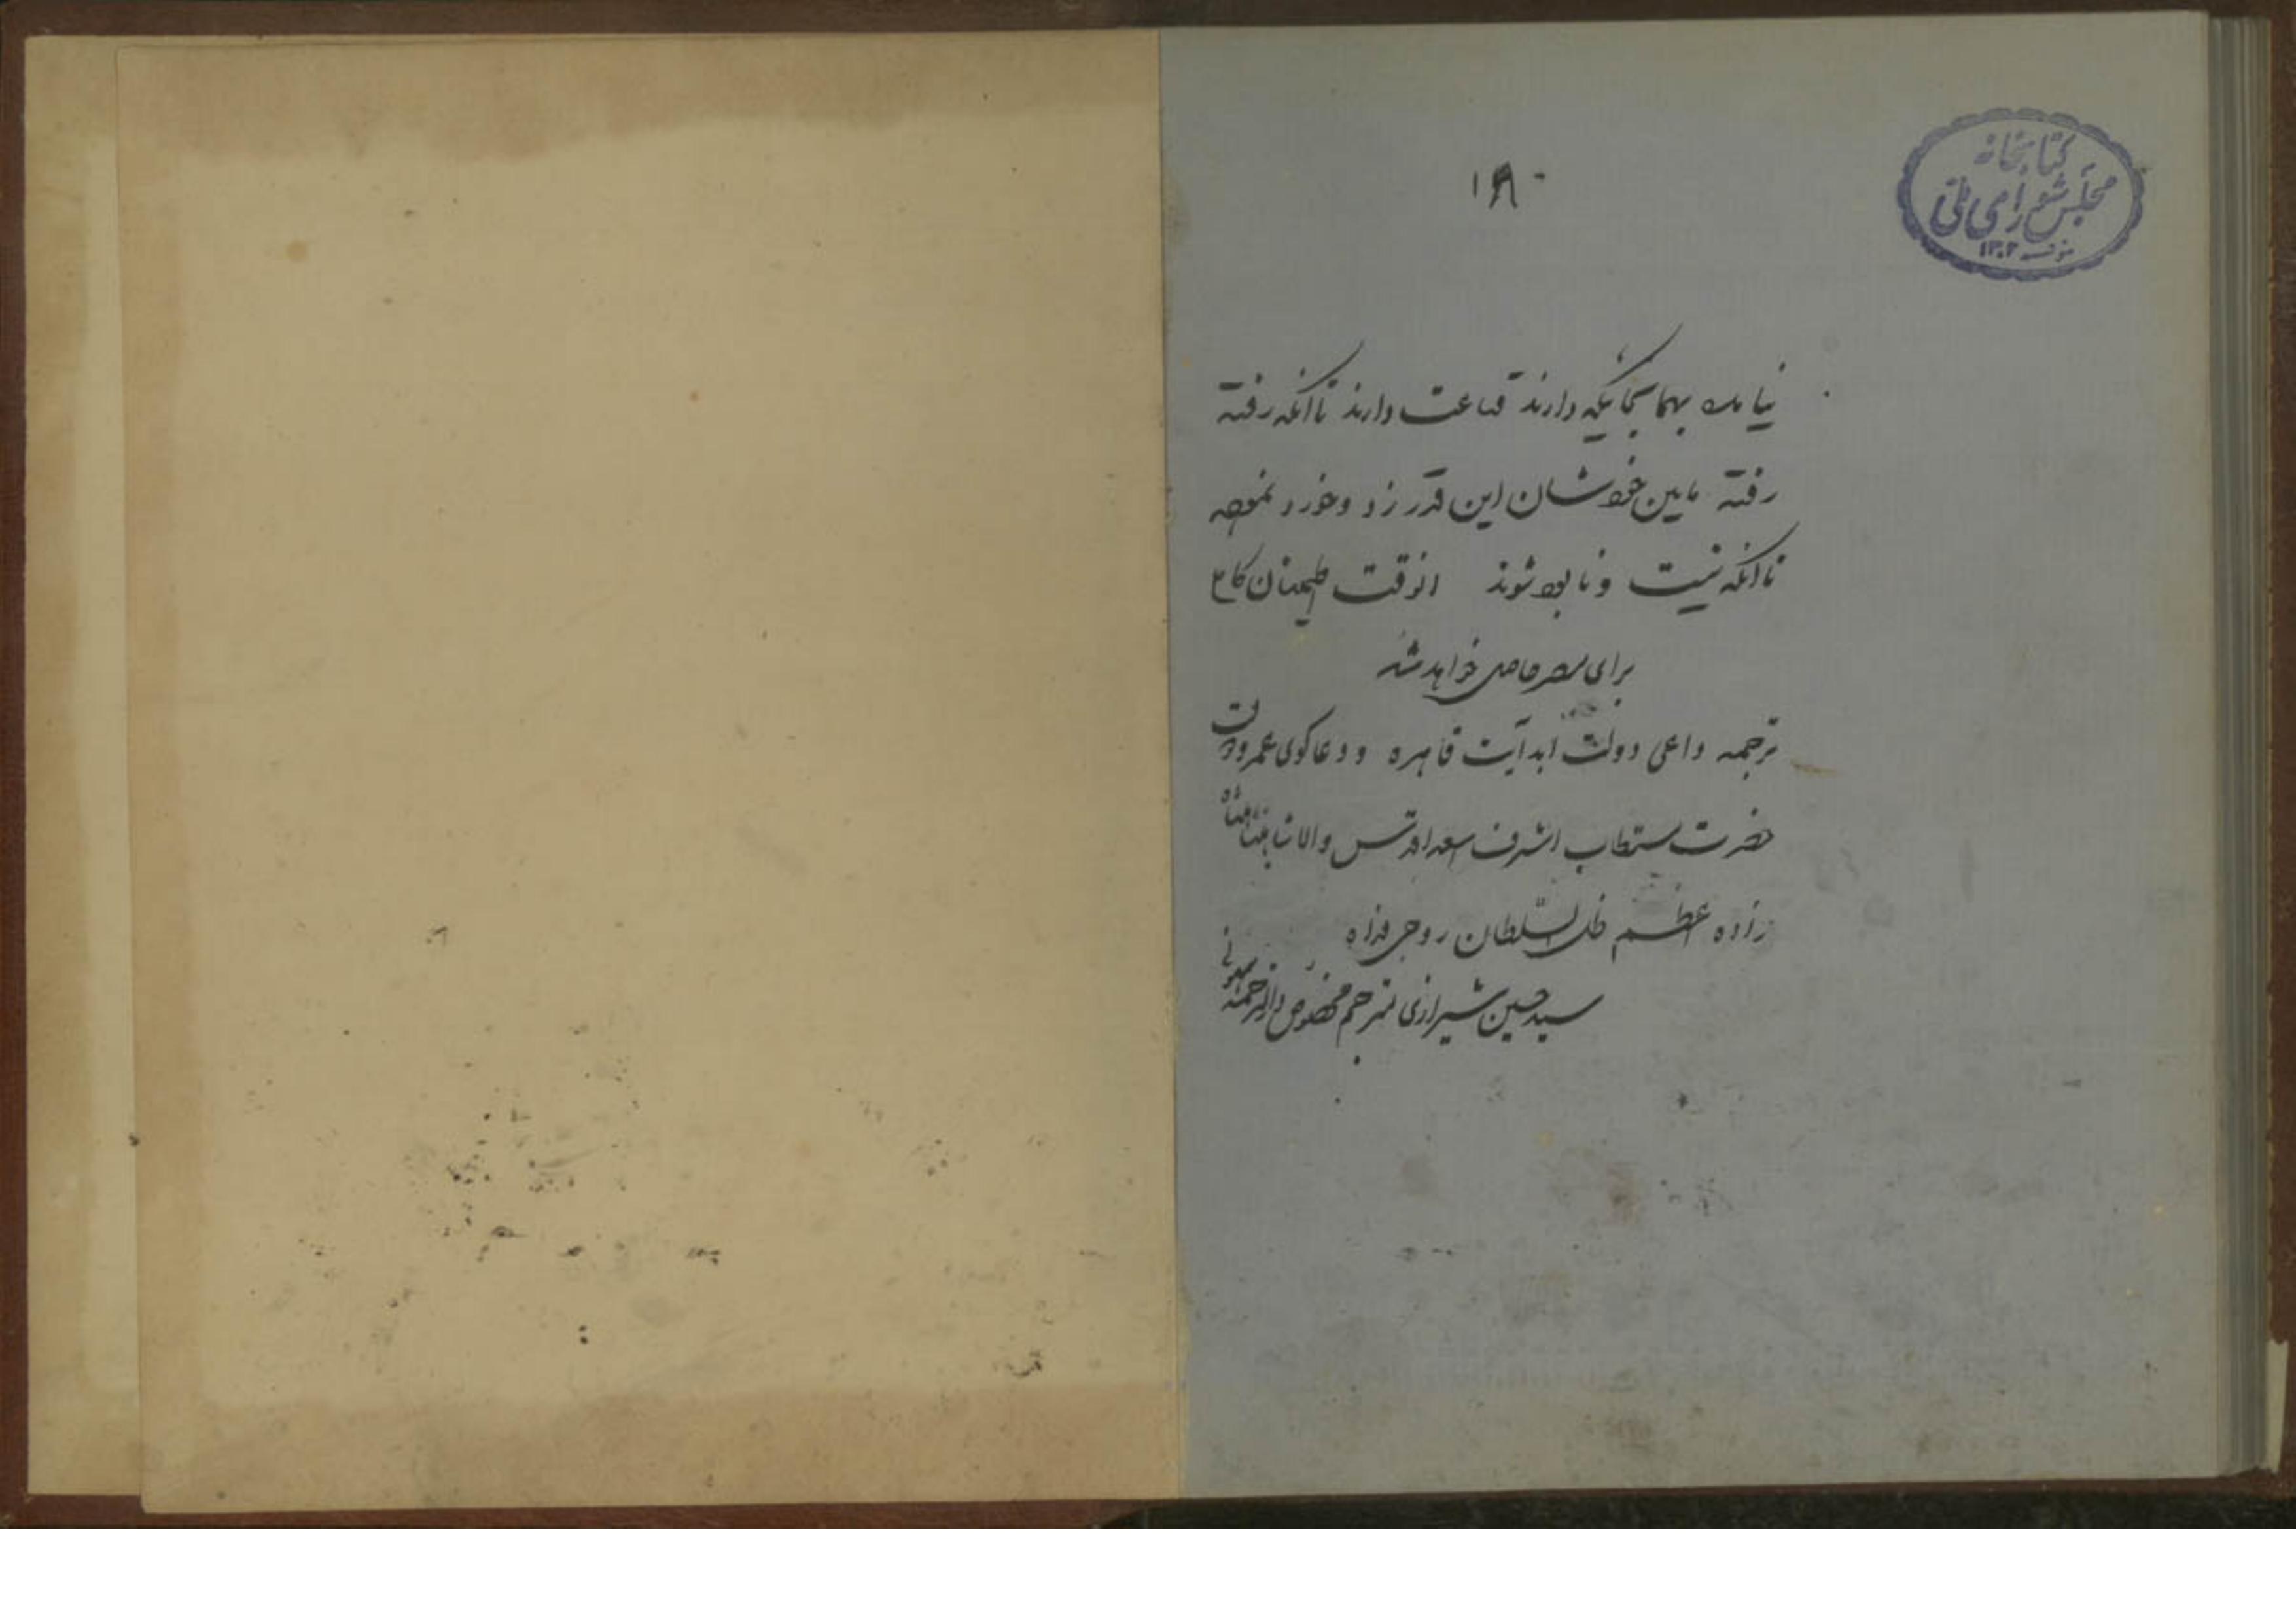 کتابخانه
مجلس شورای ملی
۱۳۰۲
نیامده بهمانجائیکه دارند قناعت دارند تا آنکه رفته
رفته مابین خودشان این قدر زد و خورد نموده
تا آنکه نیست و نابود شوند انوقت اطمینان کامل
برای حاصل خواهد شد
ترجمه داعی دولت ابد آیت قاهره و دعاکوی عمر و دولت
حضرت مستطاب اشرف اسعد اقدس والا شاهنشاه
زاده اعظم ظل السلطان روحی فداه
سید حسین شیرازی مترجم مخصوص دارالترجمه